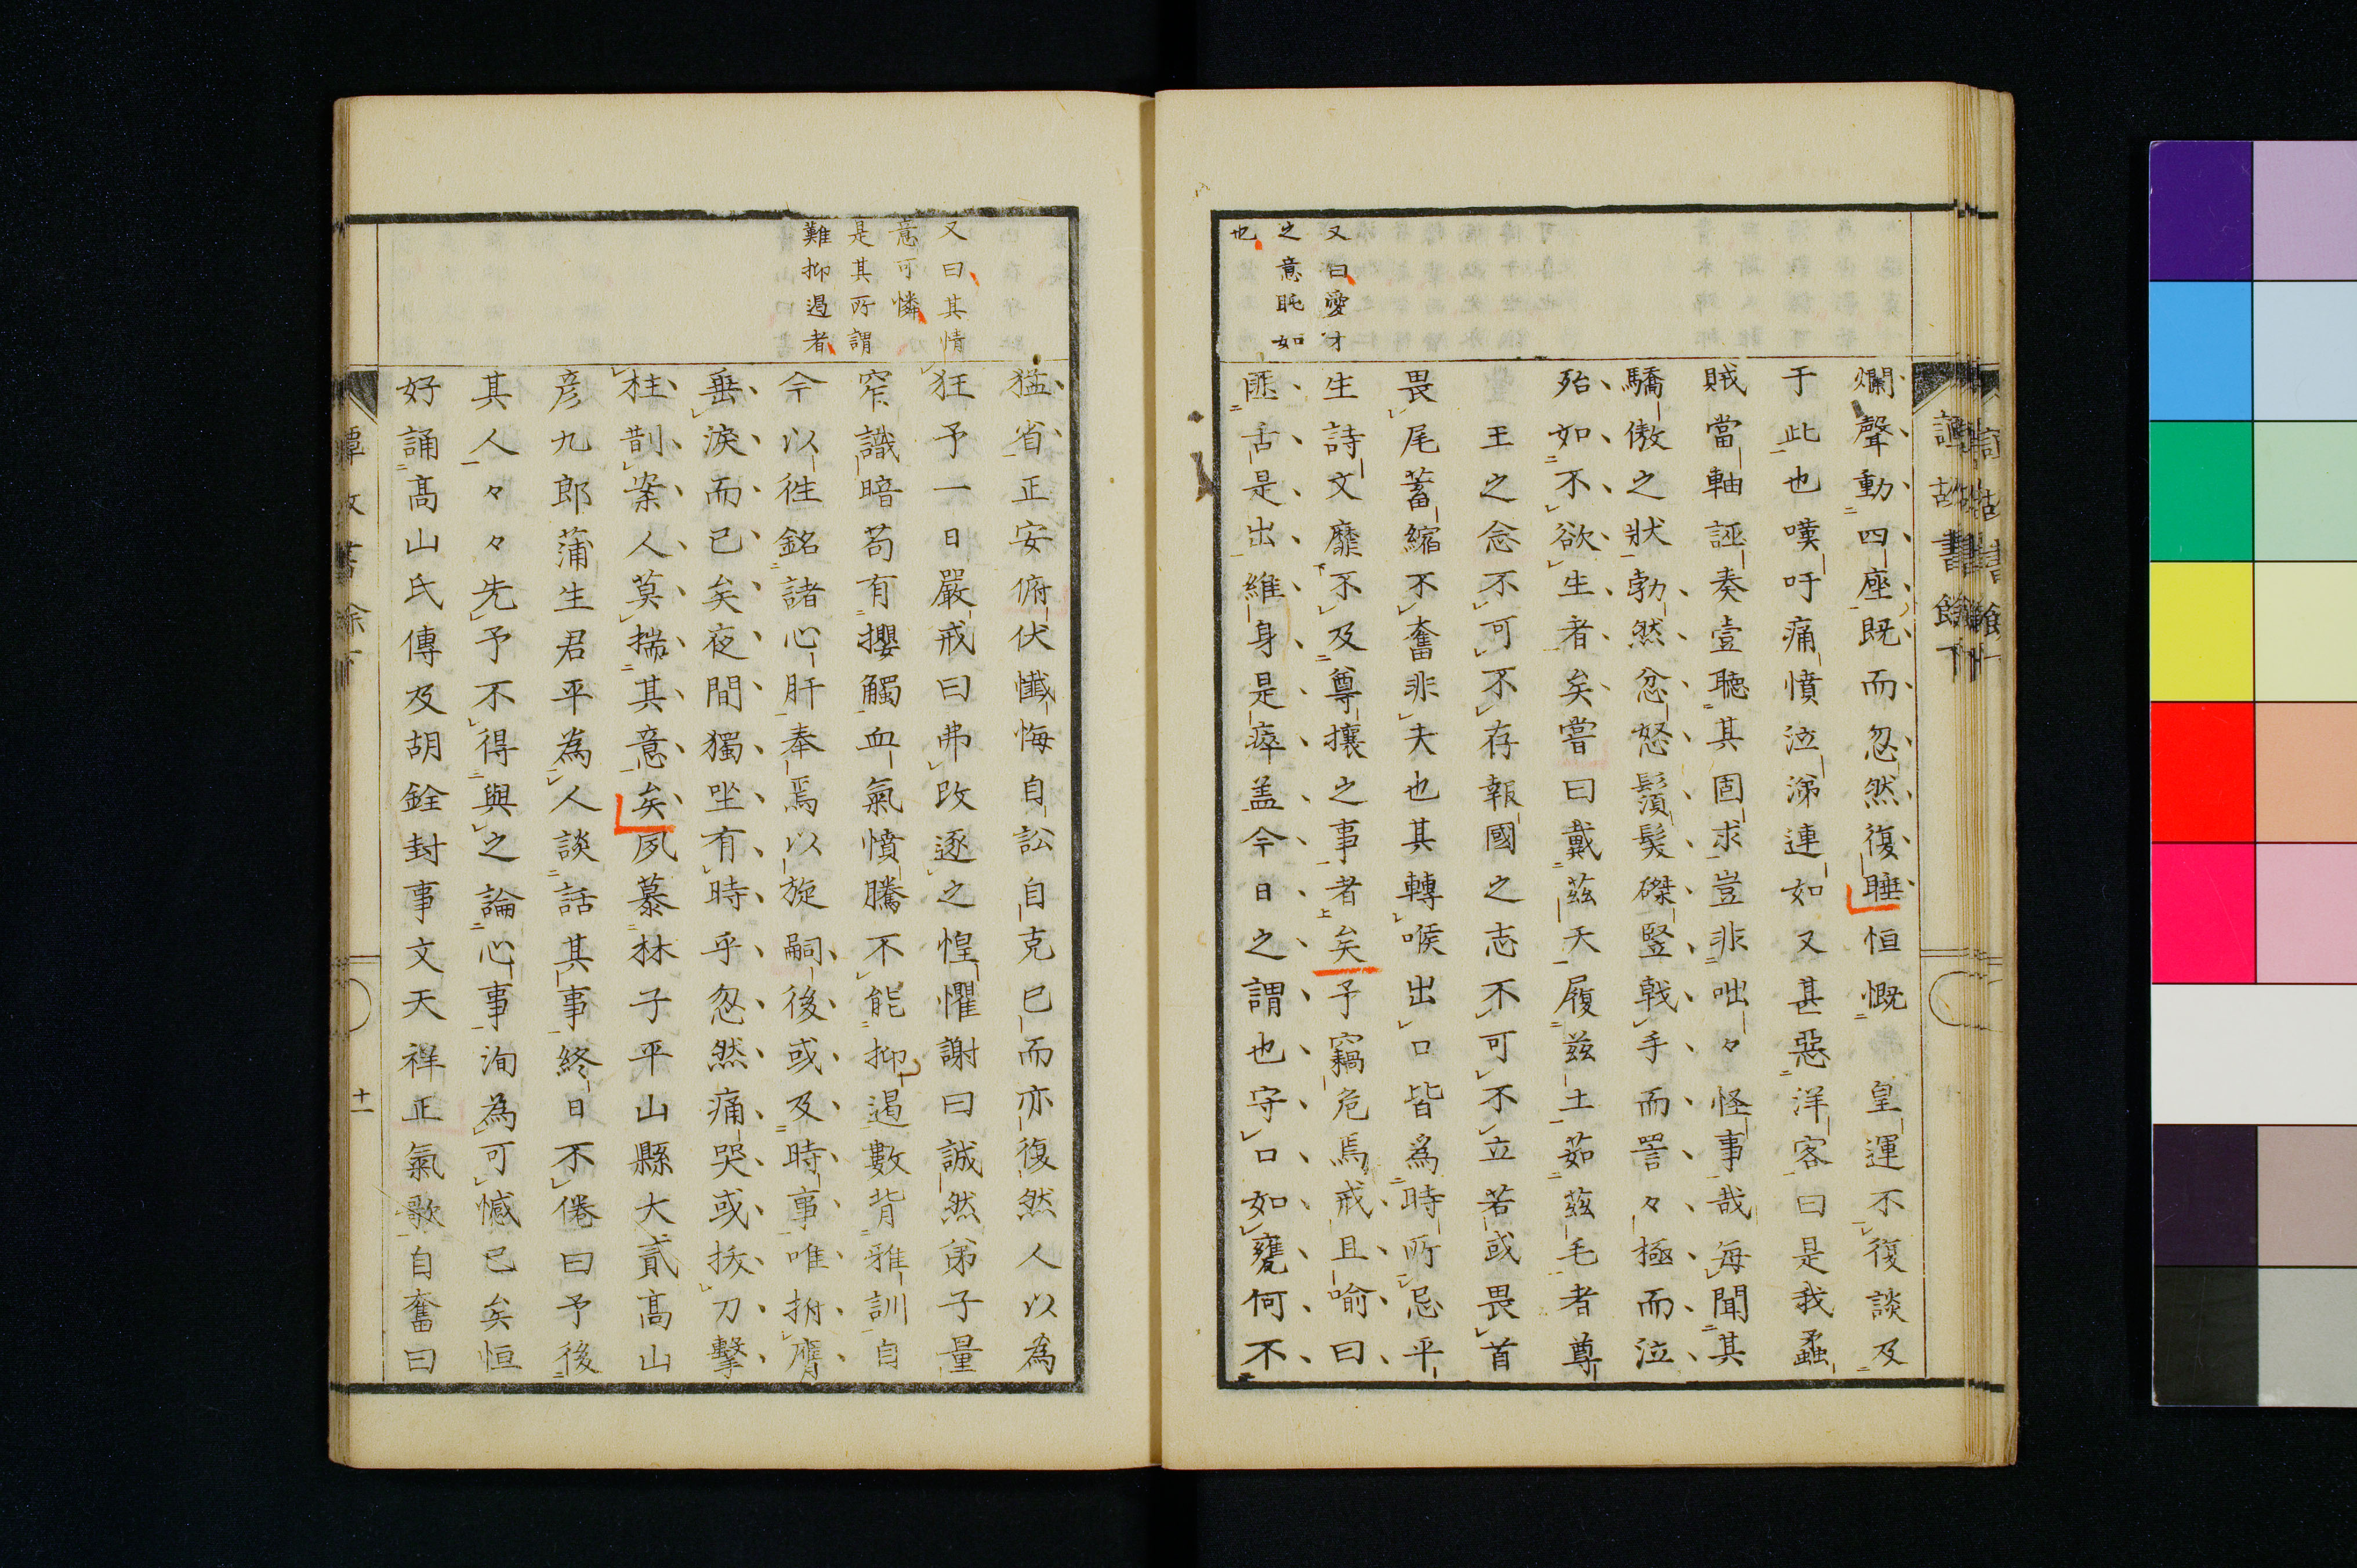 又曰愛才
之意眊如
也
爛聲動四座既而忽然復睡恒慨　皇運不復談及
于此也嘆吁痛憤泣涕連如又甚惡洋客曰是我蟊
賊當軸誣奏壹聽其固求豈非咄々怪事哉每聞其
驕傲之狀勃然忿怒鬚髮磔竪戟手而詈々極而泣
殆如不欲生者矣嘗曰戴茲天履茲土茹茲毛者尊
王之念不可不存報國之志不可不立若或畏首
畏尾蓄縮不奮非夫也其轉喉出口皆爲時所忌平
生詩文靡不及尊攘之事者矣予竊危焉戒且喻曰
匪舌是出維身是瘁盖今日之謂也守口如甕何不
又曰其情
意可憐
是其所謂
難抑遏者
猛省正安俯伏懺悔自訟自克已而亦復然人以為
狂予一日嚴戒曰弗改逐之惶懼謝曰誠然弟子量
窄識暗苟有攖觸血氣憤騰不能抑遏數背雅訓自
今以徃銘諸心肝奉焉以旋嗣後或及時事唯拊膺
垂淚而已矣夜間獨坐有時乎忽然痛哭或拔刀擊
柱剒案人莫揣其意矣夙慕林子平山縣大貳髙山
彦九郎蒲生君平為人談話其事終日不倦曰予後
其人々々先予不得與之論心事洵為可憾已矣恒
好誦髙山氏傳及胡銓封事文天祥正氣歌自奮曰
十一